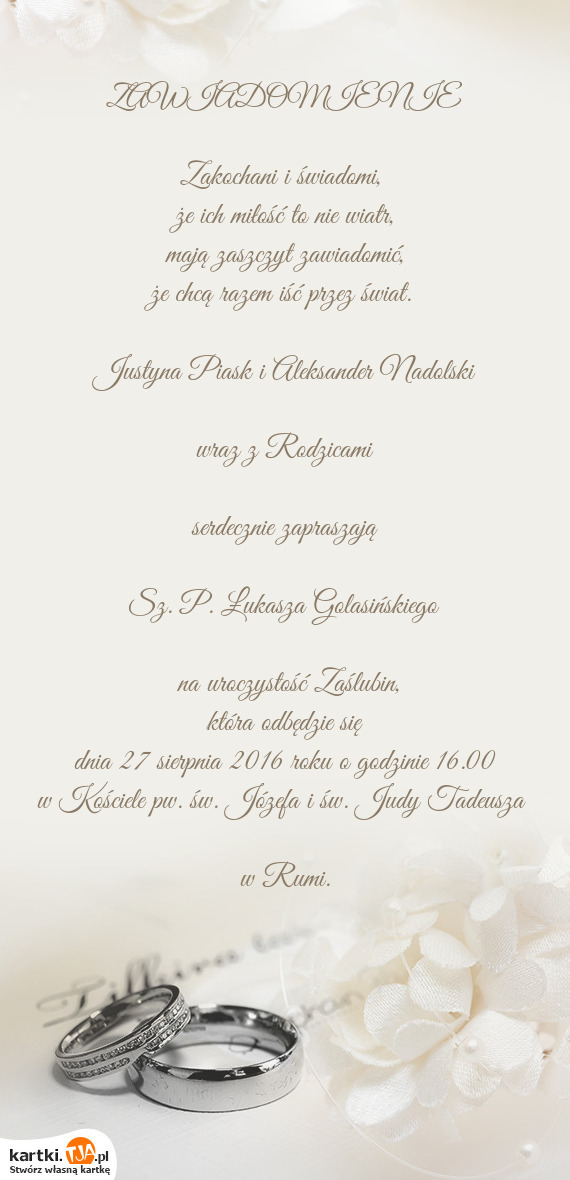 ZAWIADOMIENIE
Zakochani i świadomi,
że ich miłość to nie wiatr,
mają zaszczyt zawiadomić,
że chcą razem iść przez świat.
Justyna Piask i Aleksander Nadolski
wraz z Rodzicami
serdecznie zapraszają
Sz. P. Łukasza Golasińskiego
na uroczystość Zaślubin,
która odbędzie się
dnia 27 sierpnia 2016 roku o godzinie 16.00
w Kościele pw. św. Józefa i św. Judy Tadeusza
w Rumi.
kartki.TJA.pl
Stwórz własną kartkę